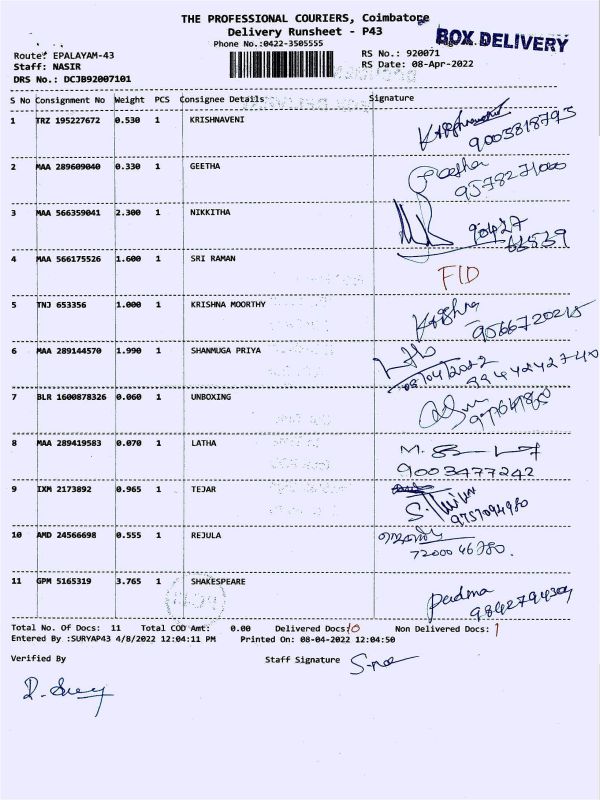 THE PROFESSIONAL COURIERS, Coimbatore
Delivery Runsheet - P43
BOX DELIVERY
Phone No.:0422-3505555
Route: EPALAYAM-43
RS No.: 920071
Staff: NASIR
RS Date: 08-Apr-2022
DRS No.: DCJB92007101
S No Consignment No Weight PCS Consignee Details Signature
1 TRZ 195227672 0.530 1 KRISHNAVENI
9003818795
2 MAA 289609040 0.330 1 GEETHA Geetha
9578271000
3 MAA 566359041 2.300 1 NIKKITHA 90427
63539
4 MAA 566175526 1.600 1 SRI RAMAN FID
5 TNJ 653356 1.000 1 KRISHNA MOORTHY Krishna
9566720215
6 MAA 289144570 1.990 1 SHANMUGA PRIYA
08/04/2022 9944242740
7 BLR 1600878326 0.060 1 UNBOXING
8 MAA 289419583 0.070 1 LATHA M.
9003477242
9 IXM 2173892 0.965 1 TEJAR
9757094980
10 AMD 24566698 0.555 1 REJULA
72000 46780.
11 GPM 5165319 3.765 1 SHAKESPEARE Padma
9842794304
Total No. Of Docs: 11 Total COD Amt: 0.00 Delivered Docs:10 Non Delivered Docs: 1
Entered By :SURYAP43 4/8/2022 12:04:11 PM Printed On: 08-04-2022 12:04:50
Verified By Staff Signature